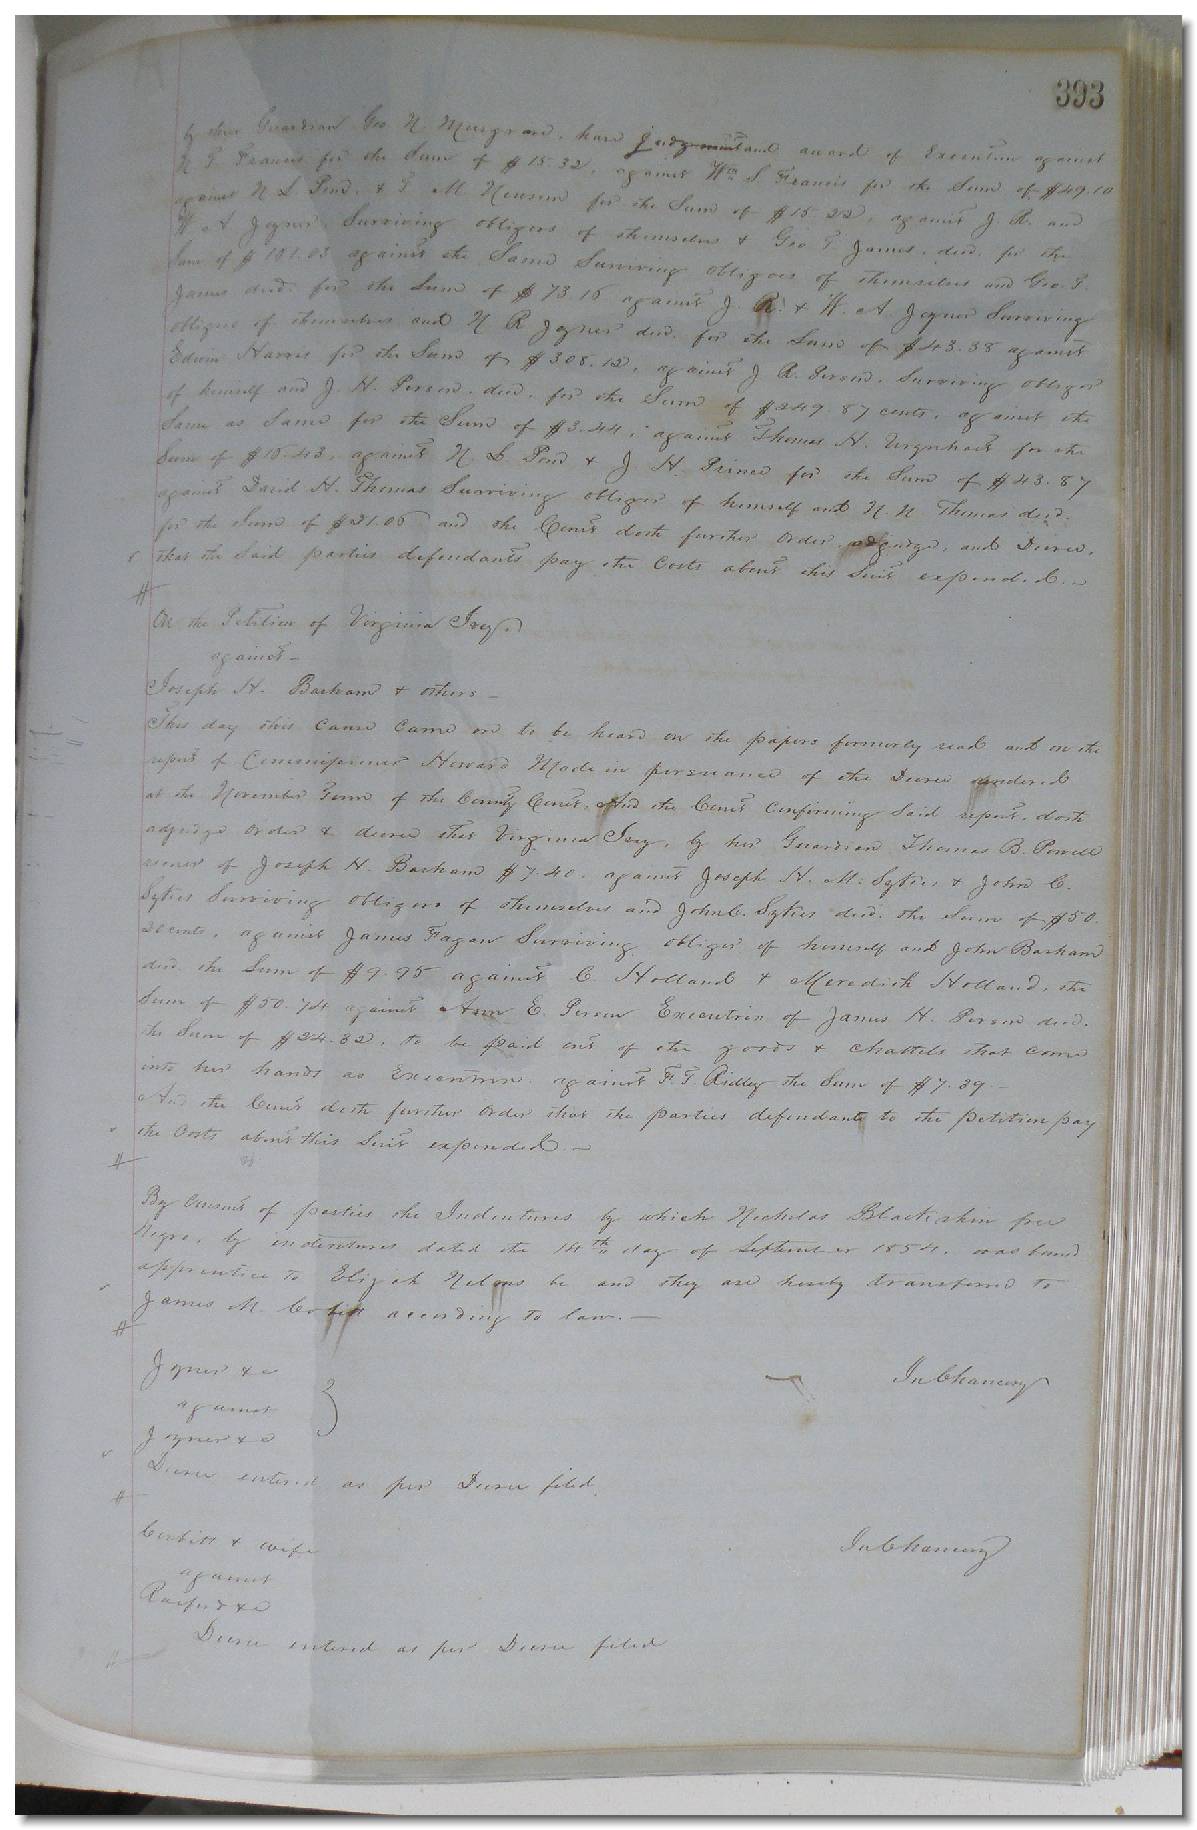 393
by their Guardian Geo N Musgrave, have judgment and award of Execution against
N T Francis for the Sum of $15.32, against Wm S Francis for the Sum of $49.10
against N L Pond, & T M Newsom for the Sum of $15.22, against J. R. and
W A Joyner, Surviving obligors of themselves & Geo T. James, decd. for the
Sum of $101.03 against the Same Surviving obligors of themselves and Geo. T.
James decd. for the Sum of $73.16 against J. R. & W. A. Joyner Surviving
obligors of themselves and N R Joyner decd. for the Sum of $43.38 against
Edwin Harris for the Sum of $308.12, against J R. Person, Surviving obligor
of himself and J. H. Person, decd. for the Sum of $249.87 cents, against the
Same as Same for the Sum of $3.44, against Thomas H. Urquhart for the
Sum of $18.43, against N. L. Pond & J. H. Prince for the Sum of $43.87
against David H. Thomas Surviving obligor of himself and N. N Thomas decd.
for the Sum of $21.06 and the Court doth further order, adjudge, and Decree,
that the Said parties defendants pay the Costs about this Suit expended.
On the Petition of Virginia Ivey
against
Joseph H. Barham & others
This day this cause came on to be heard on the papers formerly read and on the
report of Commissioner Howard Made in persuance of the Decree rendered
at the November Term of the County Court. And the Court confirming Said report, doth
adjudge order & decree that Virginia Ivey, by her Guardian Thomas B. Powell
recover of Joseph H. Barham $7.40. against Joseph H. M. Sykes & John C.
Sykes Surviving obligors of themselves and John C. Sykes decd. the Sum of $50.
20 cents, against James Fagan Surviving obligor of himself and John Barham
decd. the Sum of $9.95 against C. Holland & Meredith Holland, the
Sum of $50.74 against Ann E. Person Executrix of James H. Person decd.
the Sum of $24.32, to be paid out of the goods & chattels that come
into her hands as Executrix. against F. T Ridley the Sum of $7.39.
And the Court doth further order that the parties defendants to the petition pay
the Costs about this Suit expended.
By Consent of parties the Indentures by which Nicholas Blackshin free
Negro, by indentures dated the 14th day of September 1854, was bound
apprentice to Elijah Nelms be and they are hereby transferred to
James M. Corbitt according to law.
Joyner &c
against
Joyner &c
In Chancery
Decree entered as per Decree filed.
Corbitt & wife
against
&c
In Chancery
Decree entered as per Decree filed